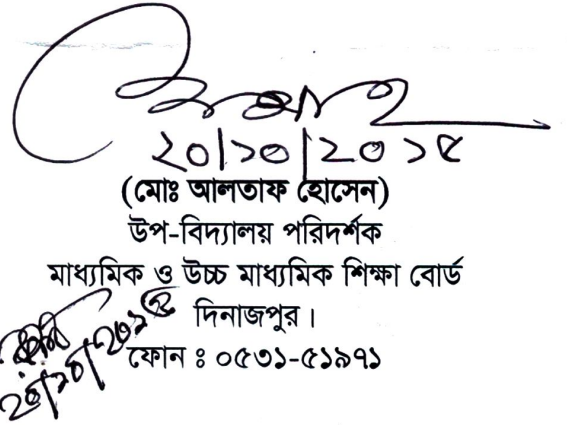 ২০/১০/২০১৫
(মোঃ আলতাফ হোসেন)
উপ-বিদ্যালয় পরিদর্শক
মাধ্যমিক ও উচ্চ মাধ্যমিক শিক্ষা বোর্ড
দিনাজপুর।
ফোন ঃ ০৫৩১-৫১৯৭১
২০/১০/২০১৫